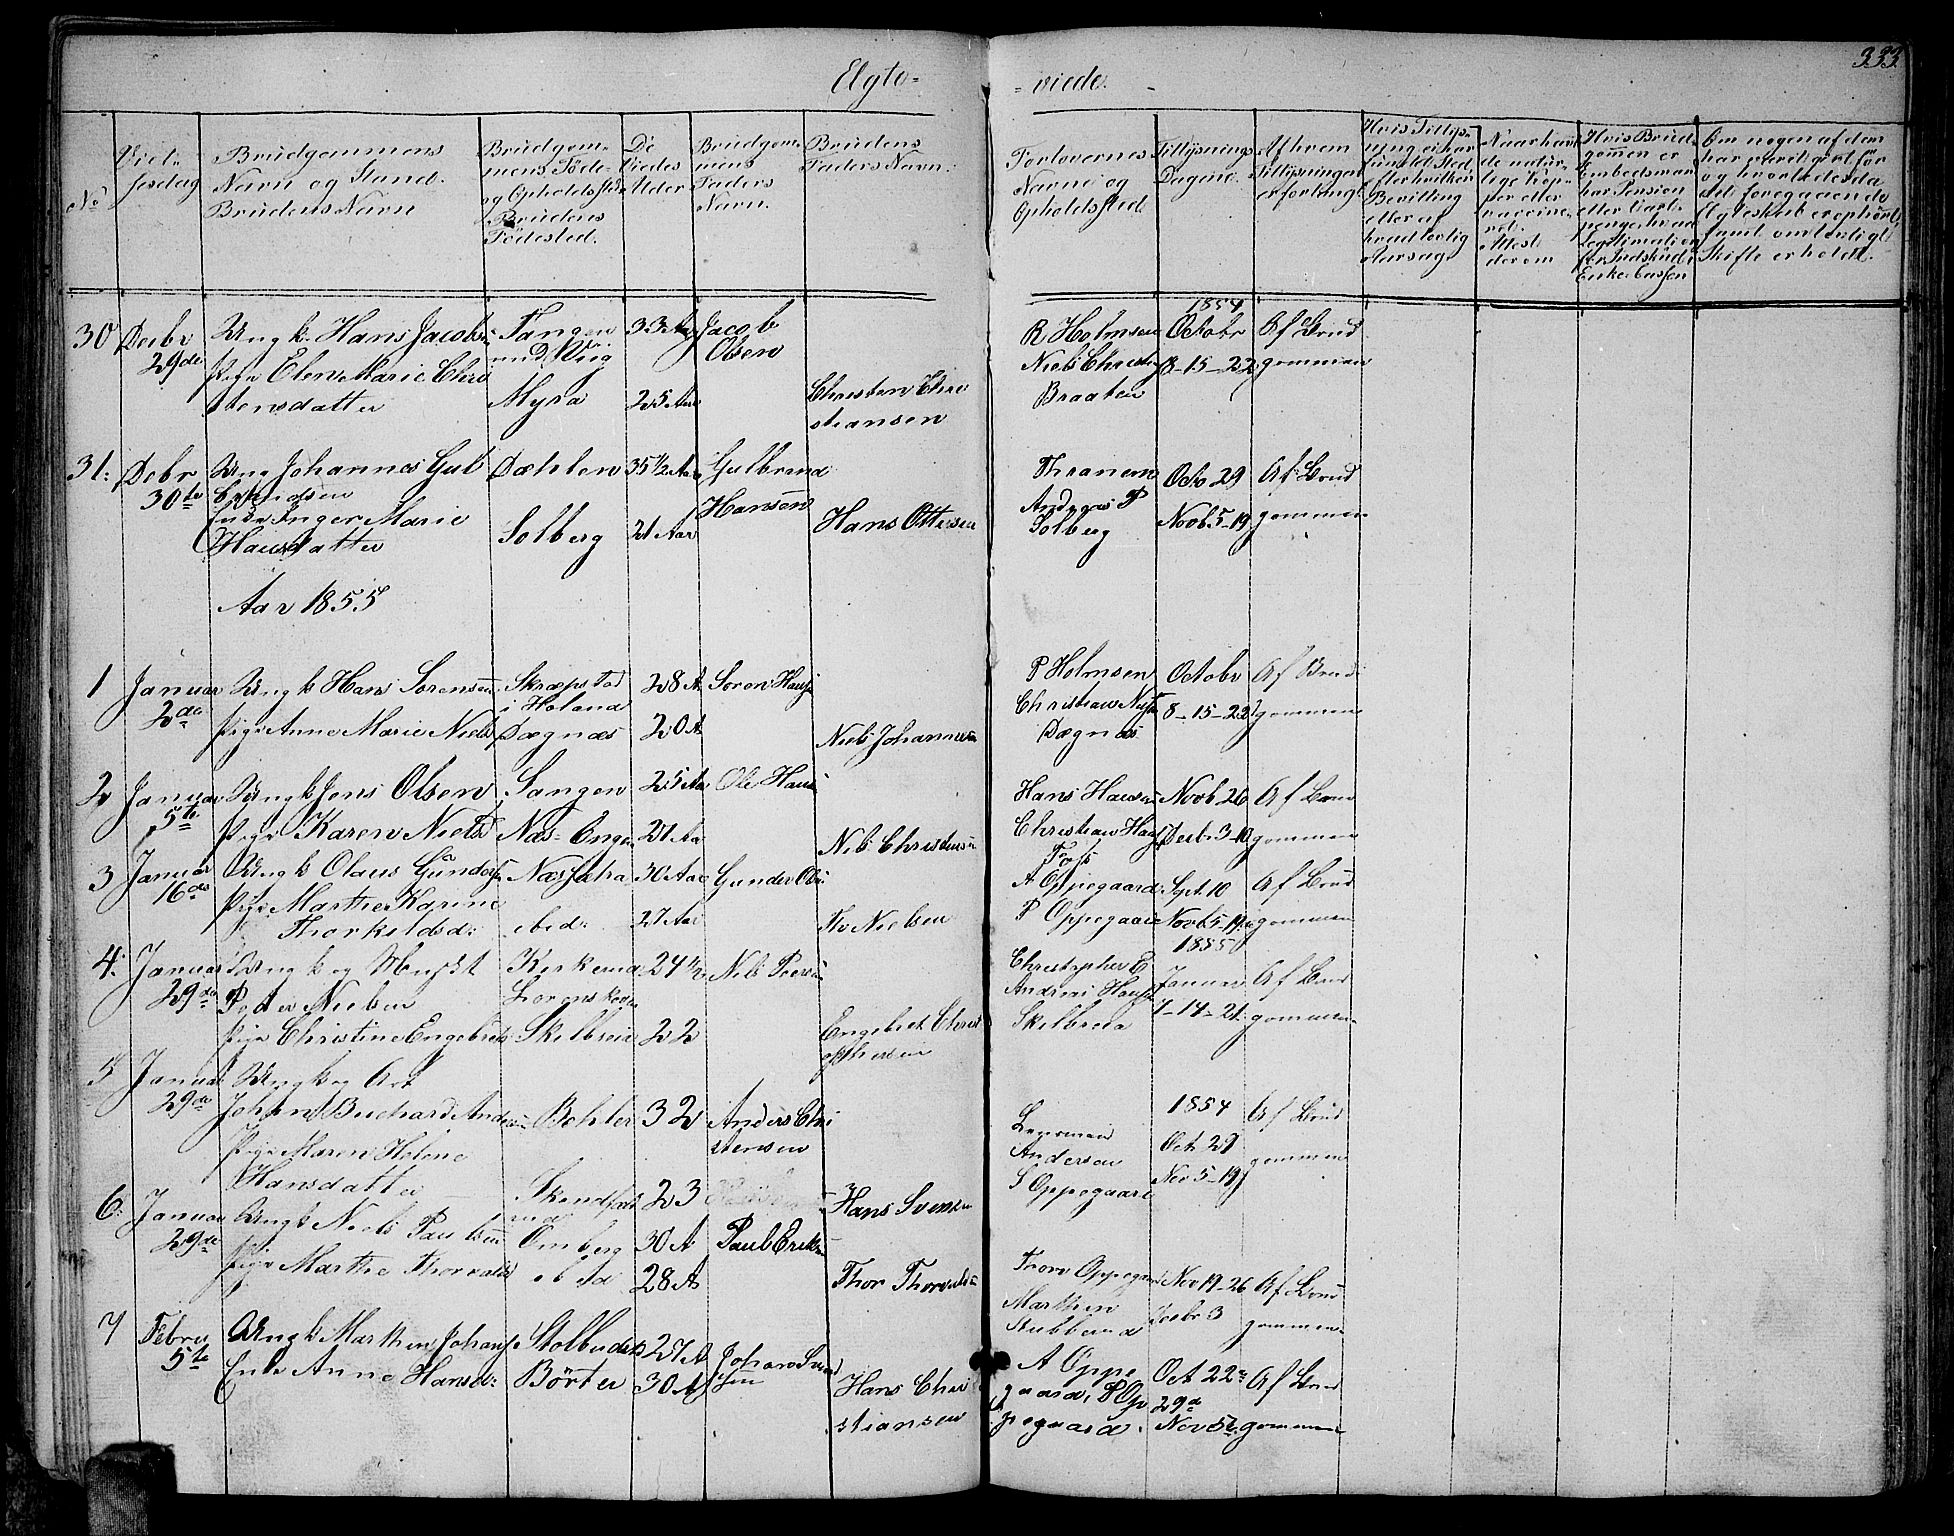 333
Egte=
=viede.
No
Viel-
sesdag
Brudgommens
Navn og Stand.
Brudens Navn
Brudgom-
mens Føde-
og Opholdssted
Brudens
Fødested.
De
Viedes
Alder
Brudgom-
mens
Faders
Navn.
Brudens
Faders Navn.
Forlovernes
Navne og
Opholdssted.
Tillysnings
Dagene.
Af hvem
Tillysningen
er forlangt
Hvis Tillys-
ning ei har
fundet Sted
efter hvilken
Bevilling
eller af
hvad lovlig
Aarsag
Naar havt
de natur-
lige Kop-
per eller
vaccine-
ret.
Attest
derom
Hvis Brud-
gommen er
Embedsman
har Pension
eller Vart-
penge hvad
Legitimation
for Indskud i
Enke Cassen
Om nogen af dem
har været gift før
og hvorledes da
det foregaaende
Egteskab er ophørt
samt om lovligt
Skifte er holdt.
30 Decbr
29de
Ungk. Hans Jacobs
Pige Elen Marie Chri
stensdatter
Tangen
Myra
33 Aar
25 Aar
Jacob
Olsen
Christen Chri
stiansen
R Holmsen
Niels Christ
Braaten
1854
Octobr
8-15-22
Af Brud
gommen
31. Debr
30te
Ung Johannes Gul
brandsen
Enke Inger Marie
Hansdatter
Dæhlen
Solberg
35 1/2 Aar
21 Aar
Gulbrand
Hansen
Hans Ottersen
Thranem
Andreas P
Solberg
Octo 29
Novb 5-19
Af Brud
gommen
Aar 1855
1 Januar
2den
Ungk Hans Sørensen
Pige Anne Marie Niels
Skræpstad
i Høland
Dægnæs
28 A
20 A
Søren Hans
Niels Johannesen
P Holmsen
Christian
Dægnæs
Octobr
8-15-22
Af Brud
gommen
2 Januar
5te
Ungk Jens Olsen
Pige Karen Nielsd
Sangen
Næs-Engen
25 Aar
21 Aar
Ole Hans
Nils Christens
Hans Hansen
Christian Hans
Novb 26
Decbr 3-10
Af Brud
gommen
3 Januar
16de
Ungk Olaus Gunders
Pige Marthe Karine
Thorkeldsd:
Næssætra
ibid:
30 Aar
27 Aar
Gunder Ols
Th Nielsen
A Oppegaard
P Oppegaard
Sept. 10
Novb 5-19
Af Brud
gommen
4. Januar
29de
Ungk og
Peter Nielsen
Pige Christine Engebrets
Kirkerud
Lørenskoven
Skelbreia
24 1/2
22
Nils Peers
Engebret Christ
ophersen
Christopher E
Andreas Hans
Skelbreia
1855
Januar
7-14-21.
Af Brud
gommen
5 Januar
29de
Ungk og Art
Johan Buchard Anders
Pige Maren Helene
Hansdatter
Bøhler
32
23
Anders Chri
stensen
Hans Svensen
Lensmand
Andersen
S Oppegaard
1854
Oct. 29
Nov 5-19
Af Brud
gommen
6. Januar
29de
Ungk Niels Paulsen
Pige Marthe Thorvalds
Omberg
ibid
30 A
28 A
Paul Eriks
Thor Thorvalds
Thorv Oppegaard
Marthin
Stubberud
Nov 19-26
Decbr 3
Af Brud
gommen
7 Febru
5te
Ungk Marthin Johans
Enke Anne Hansd:
Børter
27 A
30 A
Johan Svend
sen
Hans Chri
stiansen
A Oppe
gaard, P Op
pegaard.
Oct 22
29d
Nov 5te
Af Brud
gommen